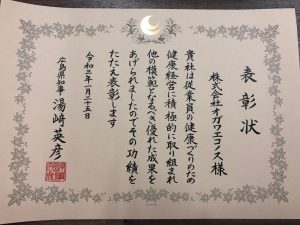 表彰状
株式会社オガワエコノス様
貴社は従業員の健康づくりのため
健康経営に積極的に取り組まれ
他の模範となるべき優れた成果を
あげられましたのでその功績を
たたえ表彰します
令和三年一月二十五日
広島県知事 湯﨑英彦